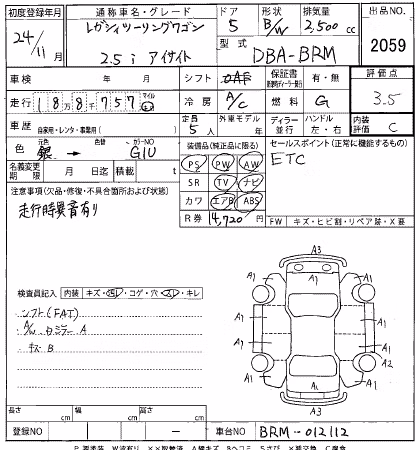 初度登録年月 通称車名・グレード ドア 形状 排気量 出品NO.
24/11月 レガシィツーリングワゴン 5 B/W 2,500cc 2059
2.5 i アイサイト 型式 DBA-BRM
車検 年 月 シフト OAF 保証書 有・無 評価点
走行 18万8千757 マイル km 冷房 A/C 燃料 G 3.5
車歴 自家用・レンタ・事業用( ) 定員 5人 外車モデル 年 ディーラー 並行 ハンドル 左・右 内装評価 C
色 元色 銀 色替 カラーNO G1U 装備品(純正品に限る) セールスポイント(正常に機能するもの)
名義変更期限 月 日迄 積載 t PS PW AW ETC
注意事項(欠品・修復・不具合箇所および状態) SR TV ナビ
走行時異音有り カワ エアB ABS
R券 4,720円 FW キズ・ヒビ割・リペア跡・X要
A3
検査員記入 内装 キズ・汚レ・コゲ・穴・スレ・キレ
シフト(FAT)
A/W カジラー A
キズ B
A1 A1
A1 A1
A1 A1
A2 A1
A1
A3
長さ cm 幅 cm 高さ cm
登録NO ー 車台NO BRM-012112